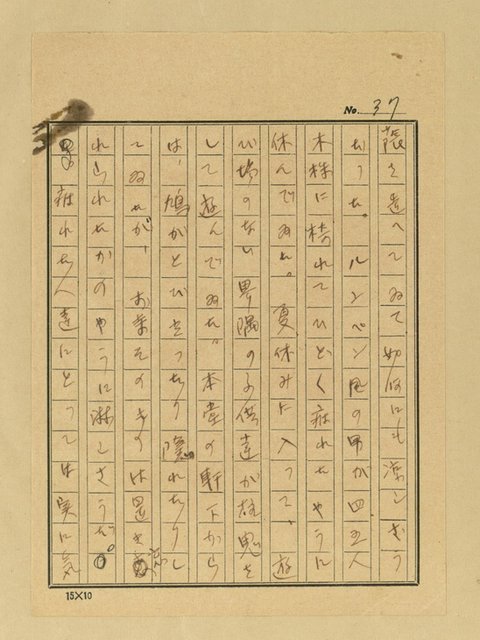 No. 37
蔭を造へてゐて如何にも凉しさう
だつた。ルンペン風の男が四五人
木株に椅れてひどく疲れたやうに
休んでゐた。夏休みに入つて、遊
び場のない界隈の子供達が鬼を
して遊んでゐた。本堂の軒下から
は、鳩がとび立つたり隠れたりし
てゐたが、お堂そのものは置き
れられたかのやうに淋しさうだ。
疲れた人達にとつては実に気
15×10